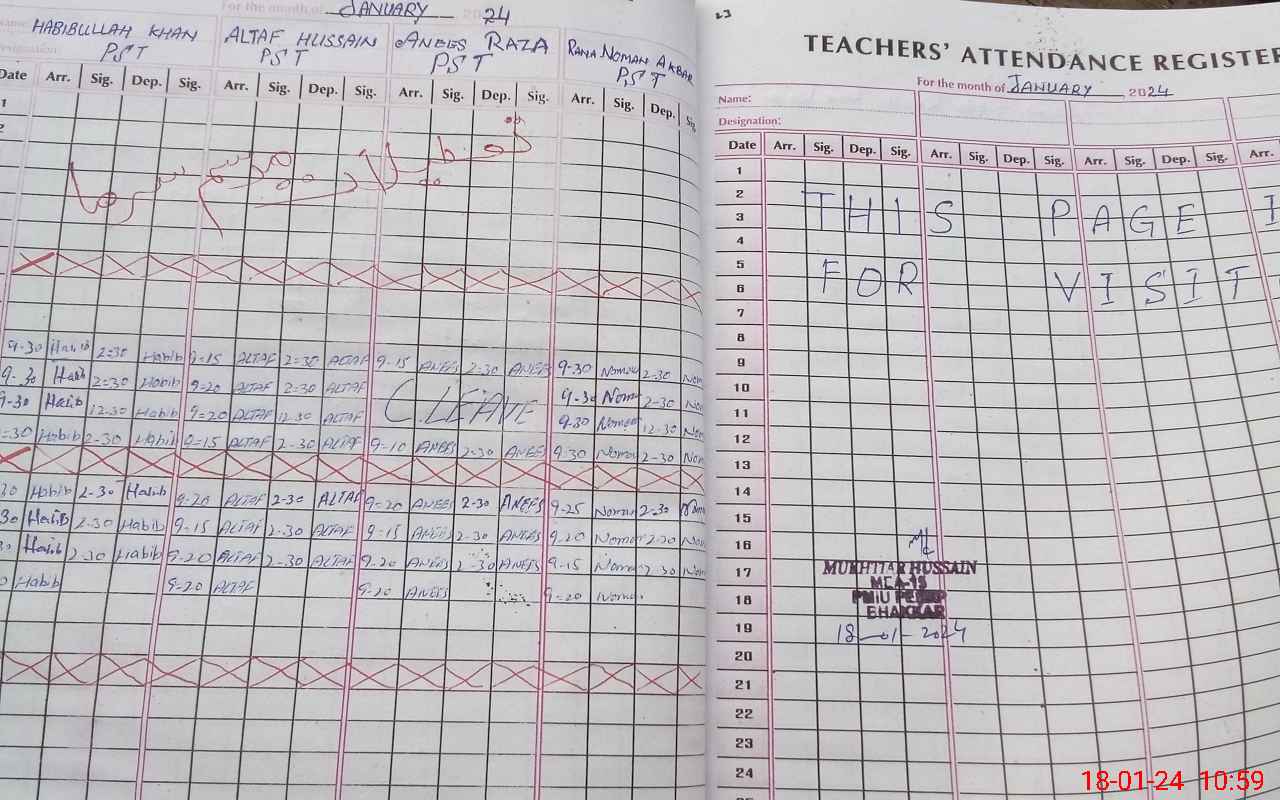 For the month of JANUARY 2024
HABIBULLAH KHAN ALTAF HUSSAIN ANEES RAZA RANA NOMAN AKBAR
PST PST PST PST
Date Arr. Sig. Dep. Sig. Arr. Sig. Dep. Sig. Arr. Sig. Dep. Sig. Arr. Sig. Dep. Sig
1
2
9-30 Habib 2-30 Habib 9-15 ALTAF 2-30 ALTAF 9-15 ANEES 2-30 ANEES 9-30 Noman 2-30 Nom
9-30 Habib 2-30 Habib 9-20 ALTAF 2-30 ALTAF C.LEAVE 9-30 Noman 2-30 Nom
9-30 Habib 12-30 Habib 9-20 ALTAF 12-30 ALTAF 9-30 Noman 12-30 Nom
-30 Habib 2-30 Habib 9-15 ALTAF 2-30 ALTAF 9-10 ANEES 2-30 ANEES 9-30 Noman 2-30 Nom
30 Habib 2-30 Habib 9-20 ALTAF 2-30 ALTAF 9-20 ANEES 2-30 ANEES 9-25 Noman 2-30 Nom
30 Habib 2-30 Habib 9-15 ALTAF 2-30 ALTAF 9-15 ANEES 2-30 ANEES 9-20 Noman 2-30 Nom
Habib 2-30 Habib 9-20 ALTAF 2-30 ALTAF 9-20 ANEES 2-30 ANEES 9-15 Noman 2-30 Nom
Habib 9-20 ALTAF 9-20 ANEES 9-20 Noman
23
TEACHERS' ATTENDANCE REGISTER
For the month of JANUARY, 2024
Name:
Designation:
Date Arr. Sig. Dep. Sig. Arr. Sig. Dep. Sig. Arr. Sig. Dep. Sig. Arr.
1
2
THIS PAGE I
3
4
5
FOR VISIT
6
7
8
9
10
11
12
13
14
15
16
17
MUKHTIAR HUSSAIN
MEA-15
18
BHAKKAR
19
18-01-2024
20
21
22
23
24
18-01-24 10:59